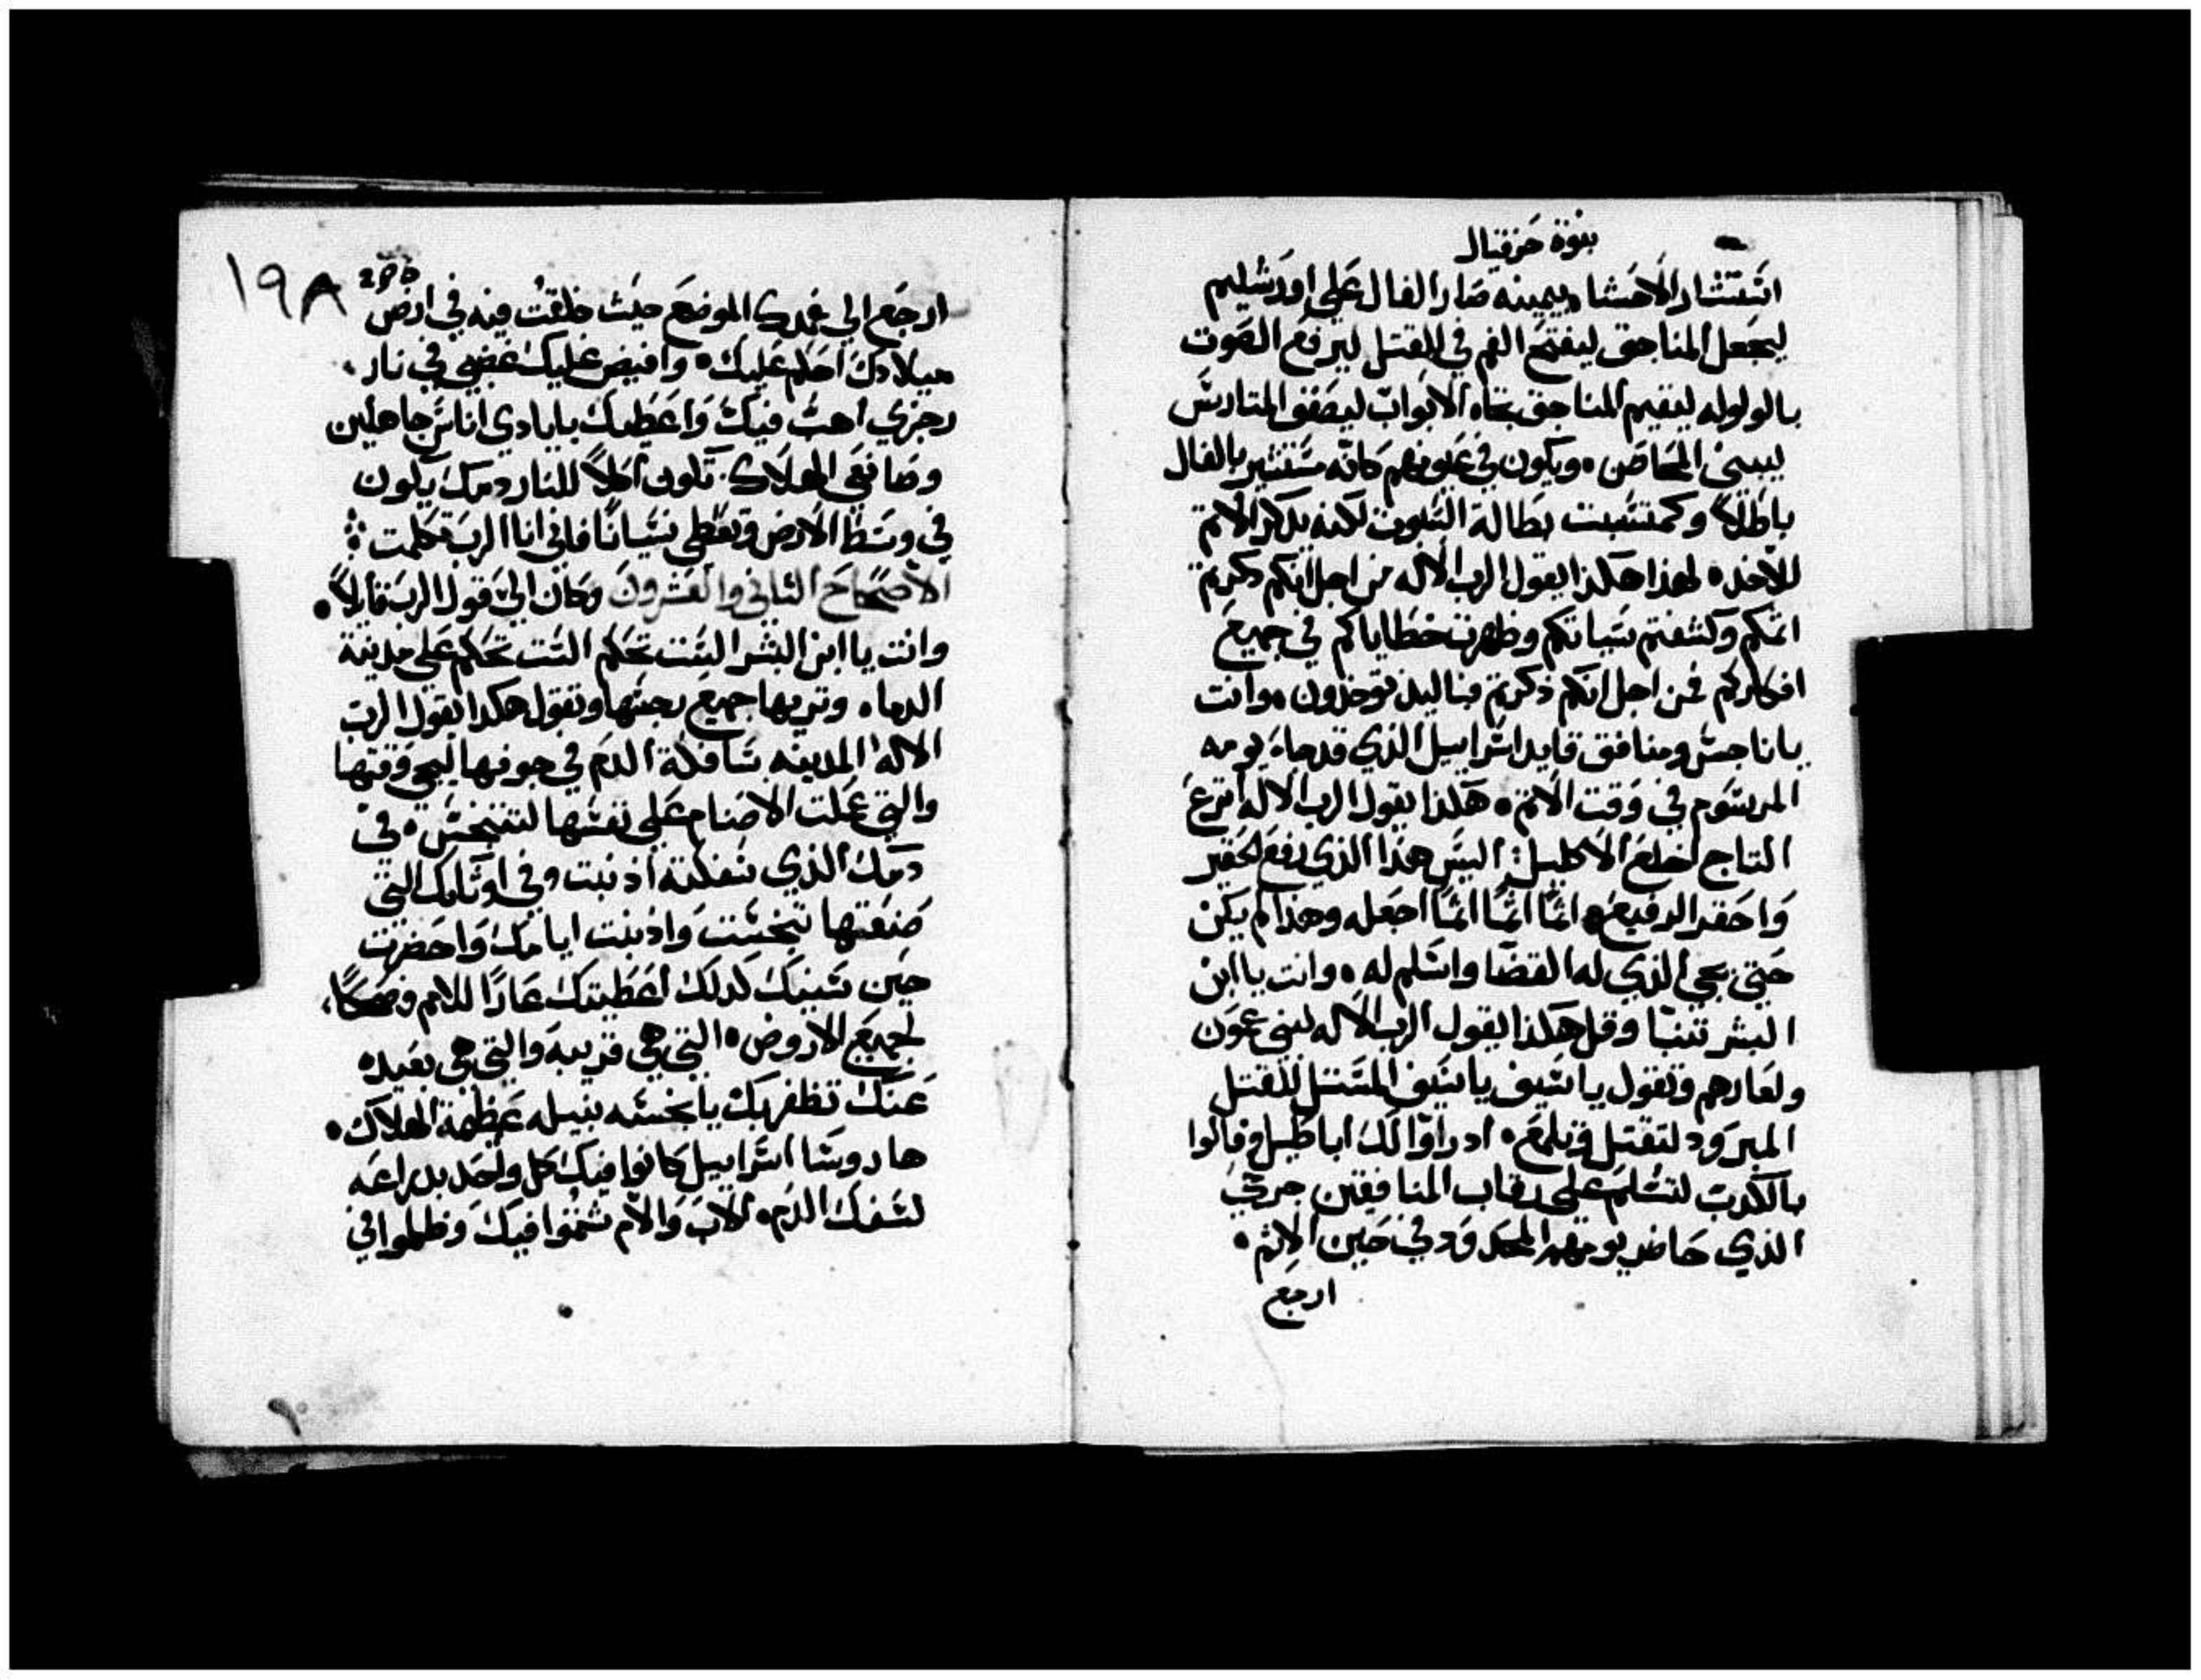 نبوة حزقيال
استشار الاحشا بيمينه صار الفال علي اورشليم
ليجعل المناجق ليفتح الفم في القتل ليرفع الصوت
بالولوله ليقيم المناجق تجاه الابواب ليصفوا المتارس
ليبني المحاصن ويكون في عيونهم كانه مستشير بالفال
باطلاً وكمتشبت بطالة السبوت لكنه يدكر الاتم
للاخد لهذا هكذا يقول الرب الاله من اجل انكم دكرتم
اتمكم وكشفتم سياتكم وظهرت خطاياكم في جميع
افكاركم فمن اجل انكم ذكرتم فباليد توخدون وانت
يا ناجس ومنافق قايد اسراييل الذي قد جاء يومه
المرسوم في وقت الاتم هكذا يقول الرب الاله انزع
التاج اخلع الاكليل اليس هذا الذي رفع الحقير
واحقر الرفيع اثمًا اثمًا اثمًا اجعله وهذا لم يكن
حتي يجي الذي له القضا واسلم له وانت يا ابن
البشر تنبا وقل هكذا يقول الرب الاله لبني عمون
ولعارهم وتقول يا سيف يا سيف المستل للقتل
المبرود لتقتل وتلمع اد راوا لك اباطيل وقالوا
بالكدب لتسلم علي رقاب المنافقين جرحي
الذي حاضر يومهم المحدود في حين الاثم
ارجع
١٩٨
ارجع الي غمدك الموضع حيث خلقت فيه في ارض
ميلادك احكم عليك وافيض عليك غضبي في نار
رجزي اهب فيك واعطيك بايادي اناس جاهلين
وصانعي الهلاك تكون اكلاً للنار دمك يكون
في وسط الارض وتعطي نسيانًا فاني انا الرب تكلمت
الاصحاح الثاني والعشرون وكان الي قول الرب قايلاً
وانت يا ابن البشر الست تحكم الست تحكم علي مدينة
الدماء وتريها جميع رجسها وتقول هكدا يقول الرب
الاله المدينه سافكة الدم في جوفها ليجي وقتها
والتي عملت الاصنام علي نفسها لتتنجس في
دمك الذي سفكته اذنبت وفي اوثانك التي
صنعتها تنجست واذنبت ايامك واحضرت
حين سنينك لدلك اعطيتك عارًا للامم وضحكًا
لجميع الاروض التي هي قريبه والتي هي بعيده
عنك تظفر بك يا نجسه نبيله عظيمة الهلاك
ها روسا اسراييل كانوا فيك كل واحد بدراعه
لسفك الدم الاب والام شتموا فيك وظلموا في